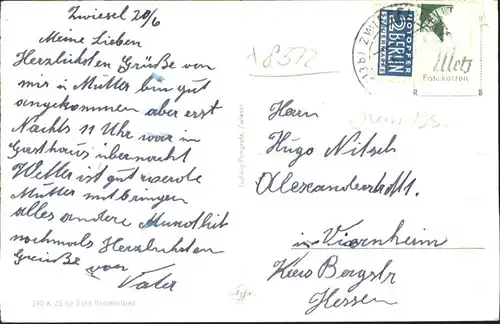 Zwiesel 20/6
Meine Lieben
Herzlichsten Grüße von
mir u Mutter bin gut
angekommen aber erst
Nachts 11 Uhr war im
Gasthaus übernacht
Wetter ist gut werde
Mutter mitbringen
alles andere Mundlich
nochmals Herzlichsten
Grüße von
Vater
A 8572
NOTOPFER
2 BERLIN
STEUERMARKE
Metz
Fotokarten
R B
Herrn
Hugo Nitsch
Alexanderstr
in Viernheim
Kreis Bergstr
Hessen
Ludwig Pongratz, Zwiesel
Agfa